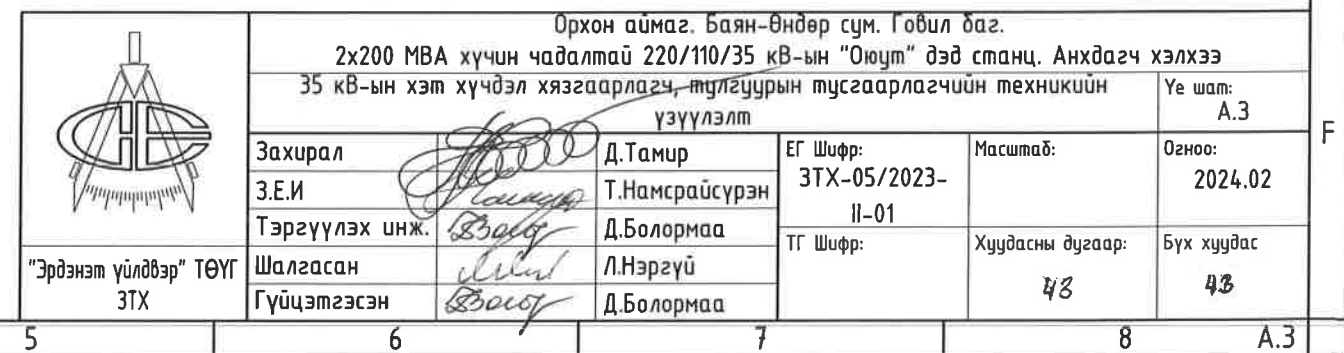 Орхон аймаг. Баян-Өндөр сум. Говил баг.
2x200 МВА хүчин чадалтай 220/110/35 кВ-ын "Оюут" дэд станц. Анхдагч хэлхээ
35 кВ-ын хэт хүчдэл хязгаарлагч, тулгуурын тусгаарлагчийн техникийн
үзүүлэлт
Үе шат:
А.3
F
Захирал
Д.Тамир
З.Е.И
Т.Намсрайсүрэн
Тэргүүлэх инж.
Д.Болормаа
Шалгасан
Л.Нэргүй
Гүйцэтгэсэн
Д.Болормаа
ЕГ Шифр:
ЗТХ-05/2023-
II-01
Масштаб:
Огноо:
2024.02
ТГ Шифр:
Хуудасны дугаар:
43
Бүх хуудас
43
"Эрдэнэт үйлдвэр" ТӨҮГ
ЗТХ
5
6
7
8
А.3